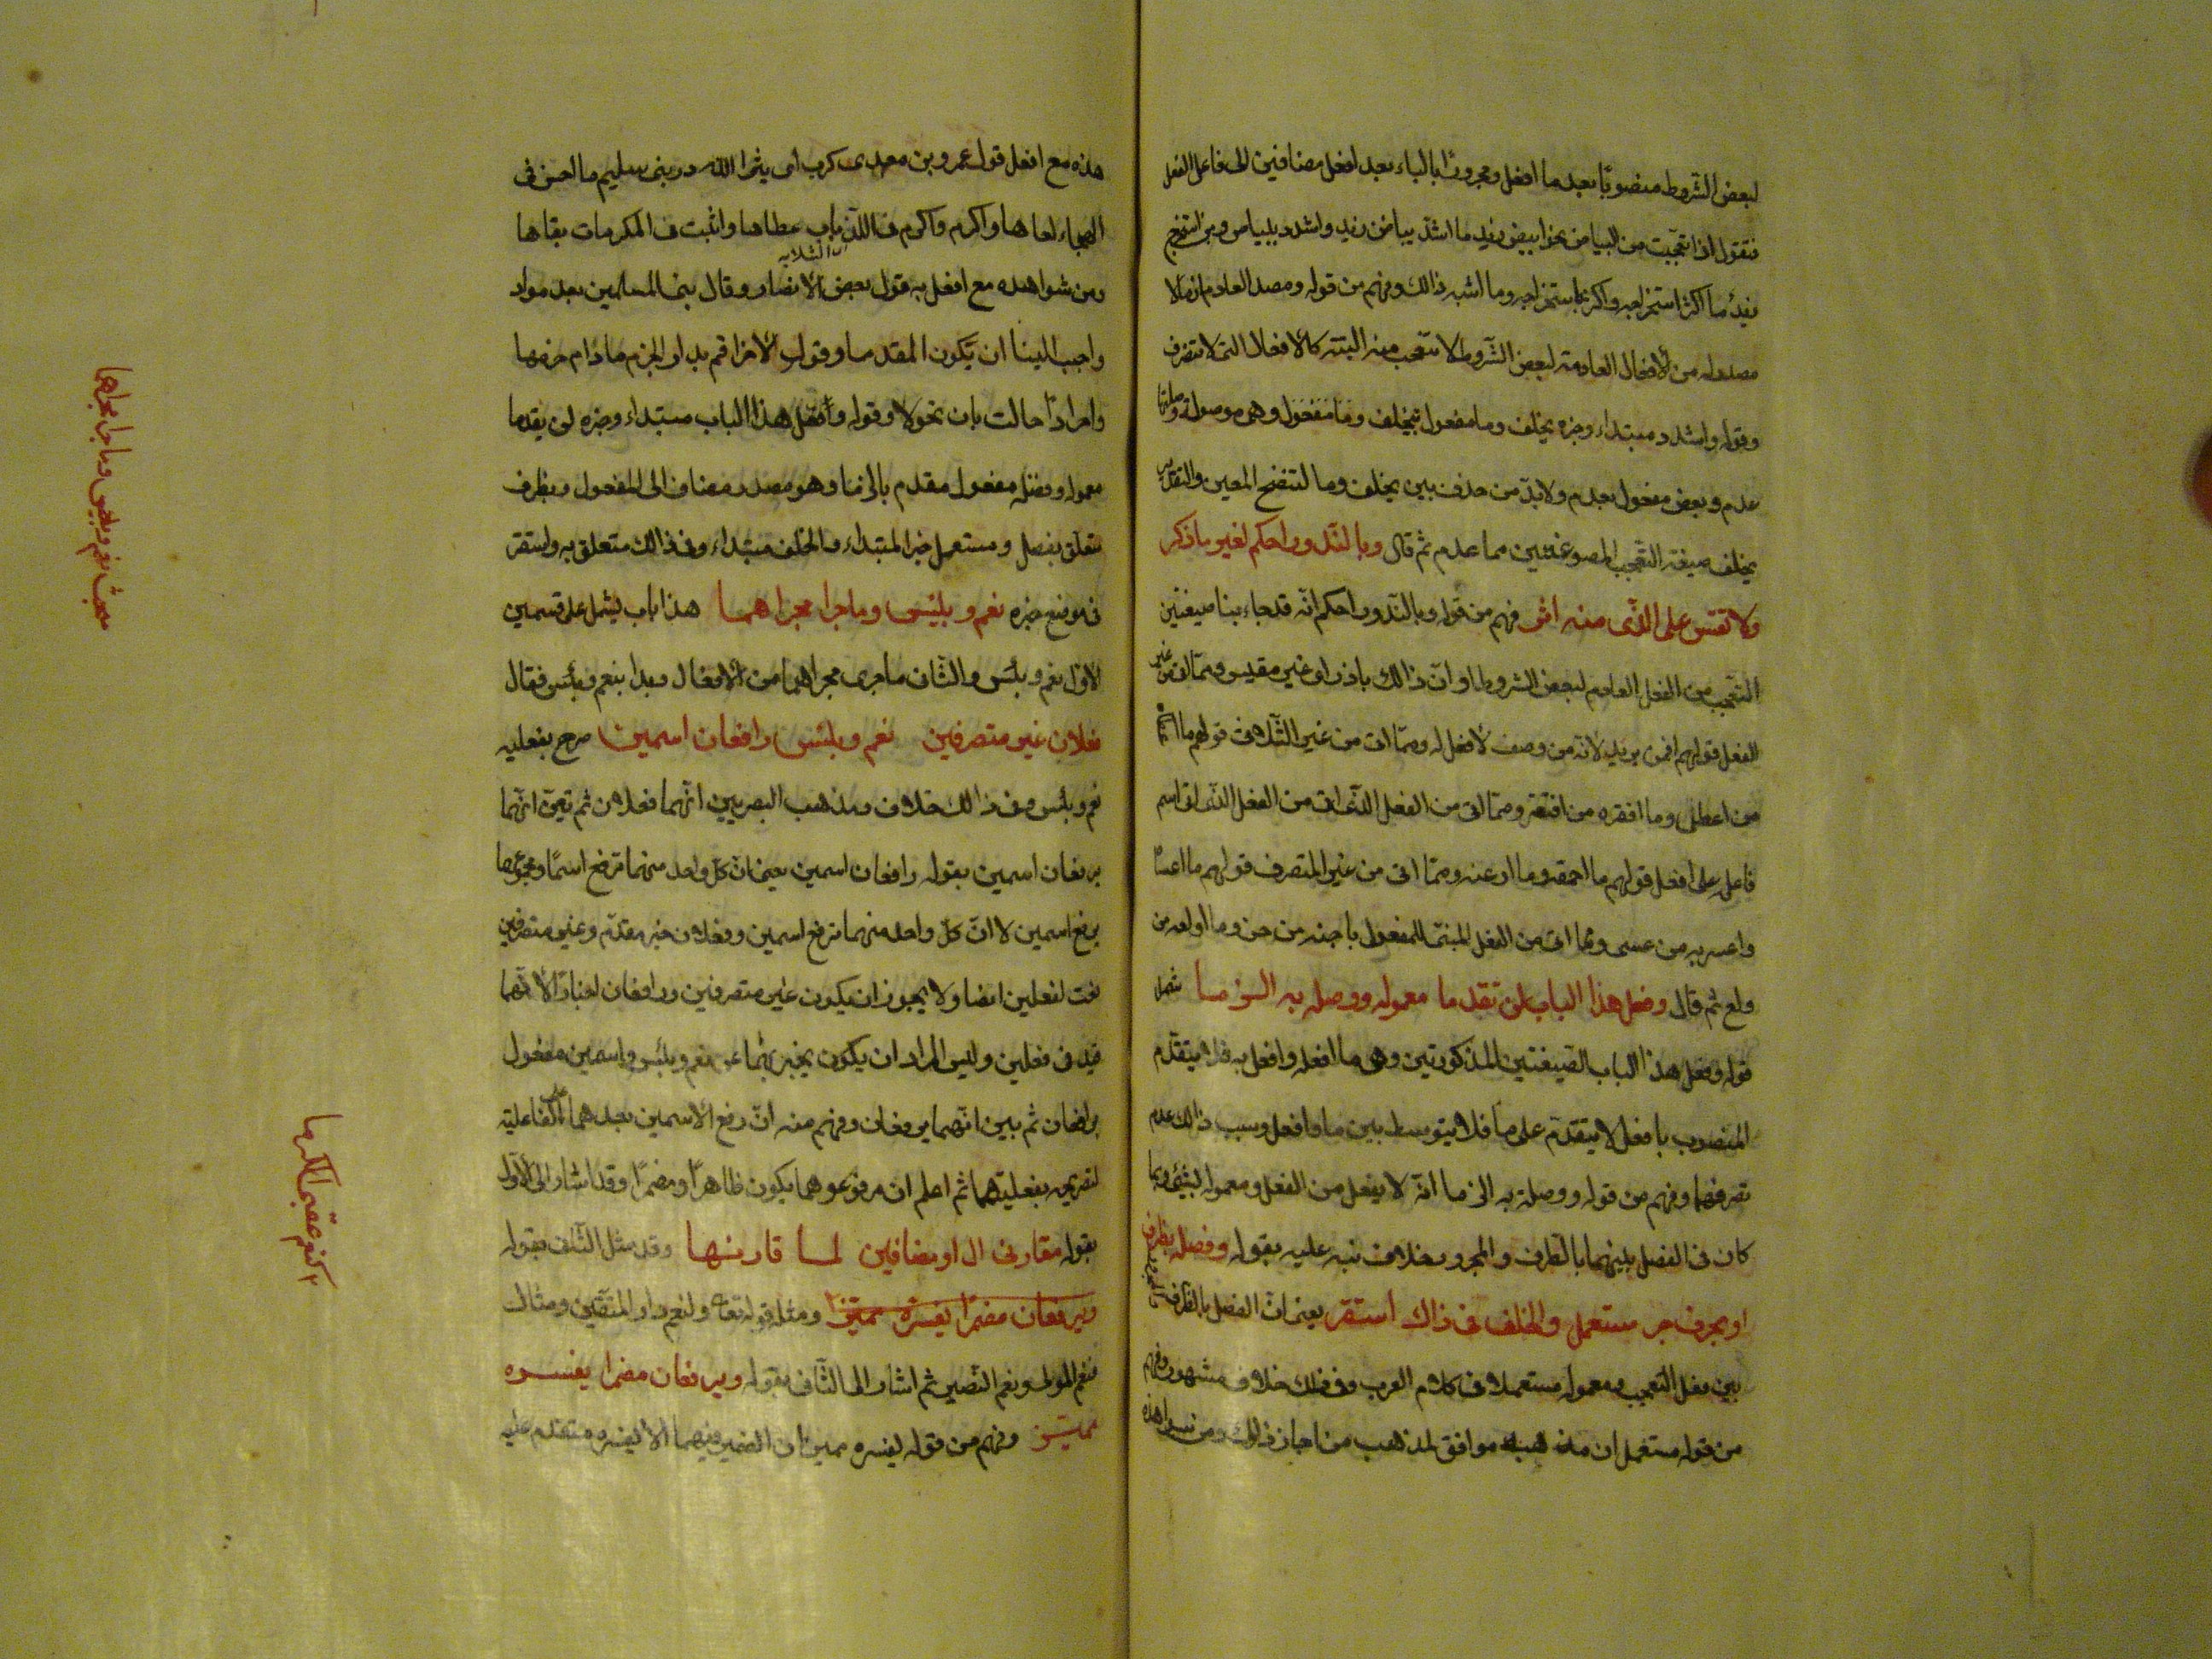 لبعض الشروط منصوبًا بعد ما افعل ومجرورًا بالباء بعد افعل مضافين الى فاعل الفعل
فتقول اذا تعجبت من البياض نحو ابيض زيد ما اشدّ بياض زيد واشدد ببياض ومن استخرج
زيد ما اكثر استخراجه واكثر باستخراجه وما اشبه ذالك وفهم من قوله ومصدر العادم ان ما لا
مصدر له من الأفعال العادمة لبعض الشّروط لا يتعجب منه البتة كالافعال التى لا تتصرف
وقوله واشدد مبتداء وخبره يخلف وما مفعول بيخلف وهى موصولة وصلتها
عدم وبعض مفعول بعدم ولا بدّ من حذف بين يخلف وما لتتضح المعين والتقدير
يخلف صيغة التعجب المصوغتين مما عدم ثم قال وبالنّدور احكم لغير ما ذكر
ولا تقس على الذّى منه اثر فهم من قوله وبالنّدور احكم انّه قد جاء بنا صيغتين
التعجب من الفعل العادم لبعض الشروط او انّ ذالك نادر اى غير مقيس وممّا اتى من غير
الفعل قولهم اقمن بزيد لانّه من وصف لا فعل له وممّا اتى من غير الثّلاثى قولهم ما
من اعطى وما افقره من افتقر وممّا اتى من الفعل الذّى اتى اسم
فاعله على افعل قولهم ما احمقه وما ارعنه وممّا اتى من غير المتصرف قولهم ما اعساه
واعسر به من عسى ومما اتى من الفعل المبنىّ للمفعول ما جنه من جن وما اولعه من
ولع ثم قال وفعل هذا الباب لن تقدما معموله ووصله به الزما شمل
قوله وفعل هذا الباب الصيغتين المذكورتين وهى ما افعله وافعل به فلا يتقدّم
المنصوب بافعل لا يتقدّم على ما فلا يتوسط بين ما وافعل وسبب ذالك عدم
تصرفهما وفهم من قوله ووصله به الزما انّه لا يفصل من الفعل ومعموله بشئ وبما
كان فى الفصل بينهما بالظرف والمجرور خلاف نبه عليه بقوله وفصله بظرف
او بحرف جر مستعمل والخلف فى ذاك استقر يعنى انّ الفصل بالظرف والمجرور
بين فعل التعجب ومعموله مستعملا فى كلام العرب وفى ذالك خلاف مشهور وفهم
من قوله مستعمل ان مذهبه موافق لمذهب من اجاز ذالك ومن شواهده
هذه مع افعل قول عمرو بن معدى كرب ابى ثور الله در بنى سليم ما احسن فى
الهيجاء لقاها واكرم واكرم فى اللّزبات عطاها واثبت فى المكرمات بقاها
ومن شواهده مع افعل به قول بعض الانصار وقال نبى المسلمين بعد مواد
واحبب الينا ان يكون المقدما وقول الأخر اقيم بدار الحزم مادام حزمها
واحر اذا حالت بان نحولا وقوله وفعل هذا الباب مبتداء وخبره لن يقدما
معموله ووصله مفعول مقدم بالزما وهو مصدر مضاف الى المفعول وبظرف
متعلق بفصل ومستعمل خبر المبتداء والخلف مبتداء وفى ذالك متعلق به واستقر
فى موضع خبره نعم وبئس وما جرا مجراهما هذا باب يشمل على قسمين
الأوّل نعم وبئس والثّان ما جرى مجراهما من الأفعال وبدا بنعم وبئس فقال
فعلان غير متصرفين نعم وبئس رافعان اسمين صرح بفعلية
نعم وبئس وفى ذالك خلاف ومذهب البصريين انّهما فعلان ثم تبين انّهما
يرفعان اسمين بقوله رافعان اسمين يعنى انّ كل واحد منهما ترفع اسمًا ومجموعهما
يرفع اسمين لا انّ كلّ واحد منهما ترفع اسمين وفعلان خبر مقدّم وغير متصرفين
نعت لفعلين ايضا ولا يجوز ان يكون غير متصرفين ورافعان اخبارًا لأنّهما
قيد فى فعلين وليس المراد ان يكون يخبر بهما عن نعم وبئس واسمين مفعول
برافعان ثم بين انّهما يرفعان وفهم منه انّ رفع الاسمين بعدهما على الفاعلية
لتصريحه بفعليتهما ثم اعلم ان مرفوعهما يكون ظاهرًا ومضمرًا وقد اشار الى الأوّل
بقوله مقارنى ال او مضافين لما قارنها وقد مثل الثّانى بقوله
ويرفعان مضمرًا يفسّره مميّز ومثل قوله تعا ولنعم دار المتّقين ومثال
نعم المولى ونعم النّصير ثم اشار الى الثّانى بقوله ويرفعان مضمرا يفسره
مميّز وفهم من قوله يفسره مميز ان الضمير فيهما الا يفسره متقدم عليه
مبحث نعم وبئس وما جرا مجراهما
كنعم عقبى الكرما